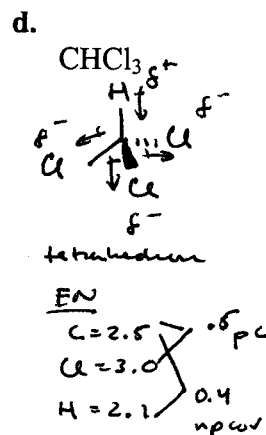 d.
CHCl₃
H δ+
δ- Cl Cl δ-
Cl
δ-
tetrahedron
EN
C = 2.5
.5 pc
Cl = 3.0
H = 2.1
0.4
npcov